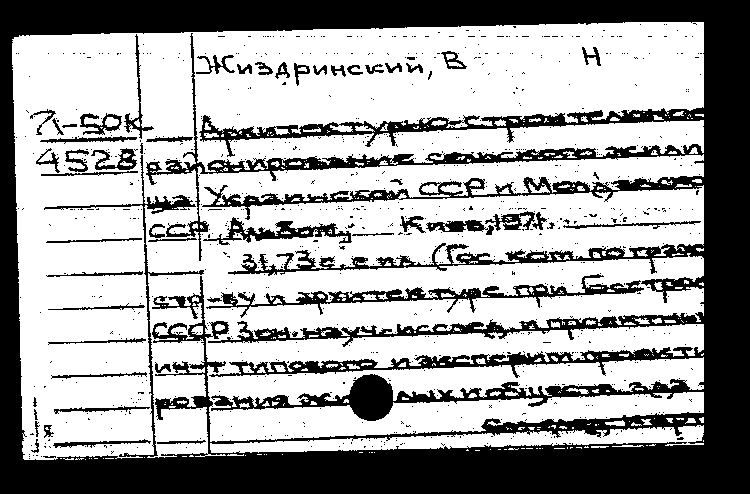 Жиздринский, В Н
Л-50К Архитектурно-строительное
4528 районирование сельского жили
ща Украинской ССР и Молдавской
ССР. Альбом. Киев, 1971.
31,73 с. с ил. (Гос. ком. по граж
стр-ву и архитектуре при Госстрое
СССР. Зон. науч.-исслед. и проектный
ин-т типового и эксперим. проекти
рования жи лых и обществ. зда